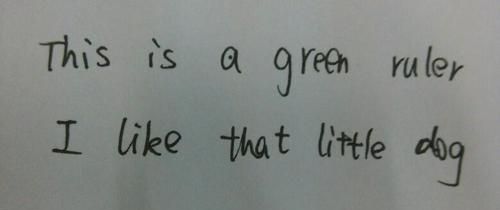 This is a green ruler
I like that little dog